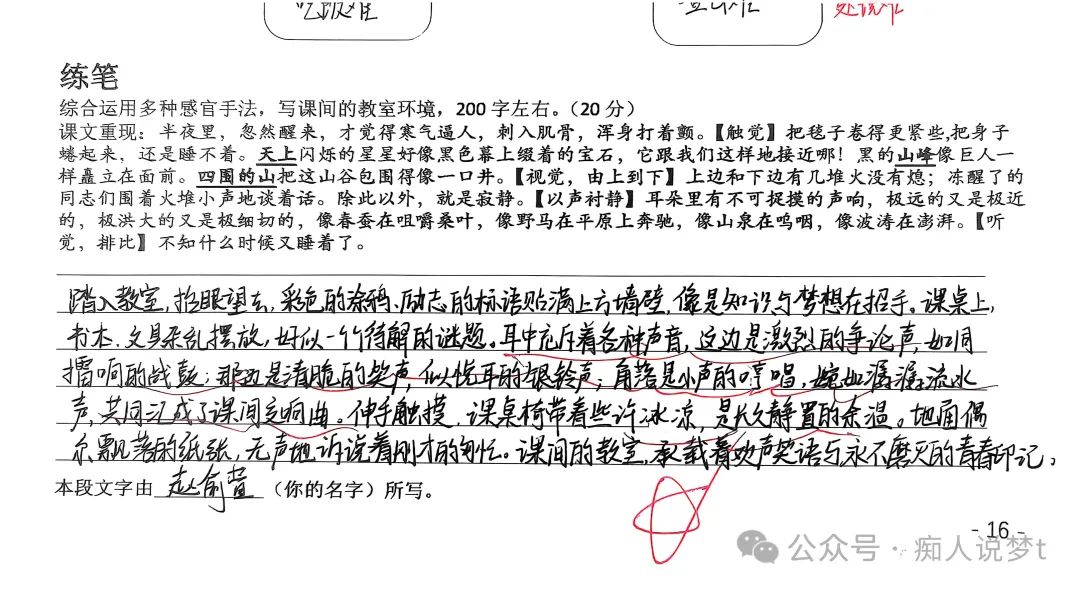 练笔
综合运用多种感官手法，写课间的教室环境，200 字左右。（20 分）
课文重现：半夜里，忽然醒来，才觉得寒气逼人，刺入肌骨，浑身打着颤。【触觉】把毯子卷得更紧些,把身子
蜷起来，还是睡不着。天上闪烁的星星好像黑色幕上缀着的宝石，它跟我们这样地接近哪！黑的山峰像巨人一
样矗立在面前。四围的山把这山谷包围得像一口井。【视觉，由上到下】上边和下边有几堆火没有熄；冻醒了的
同志们围着火堆小声地谈着话。除此以外，就是寂静。【以声衬静】耳朵里有不可捉摸的声响，极远的又是极近
的，极洪大的又是极细切的，像春蚕在咀嚼桑叶，像野马在平原上奔驰，像山泉在呜咽，像波涛在澎湃。【听
觉，排比】不知什么时候又睡着了。
踏入教室，抬眼望去，彩色的涂鸦、励志的标语贴满上方墙壁，像是知识与梦想在招手。课桌上，
书本、文具杂乱摆放，好似一个待解的谜题。耳中充斥着各种声音，这边是激烈的争论声，如同
擂响的战鼓；那边是清脆的笑声，似悦耳的银铃声；角落是小声的哼唱，宛如潺潺流水
声，共同汇成了课间交响曲。伸手触摸，课桌椅带着些许冰凉，是长久静置的余温。地面偶
尔飘落的纸张，无声地诉说着刚才的匆忙。课间的教室，承载着欢声笑语与永不磨灭的青春印记。
本段文字由 赵俞萱 （你的名字）所写。
- 16 -
公众号 · 痴人说梦t